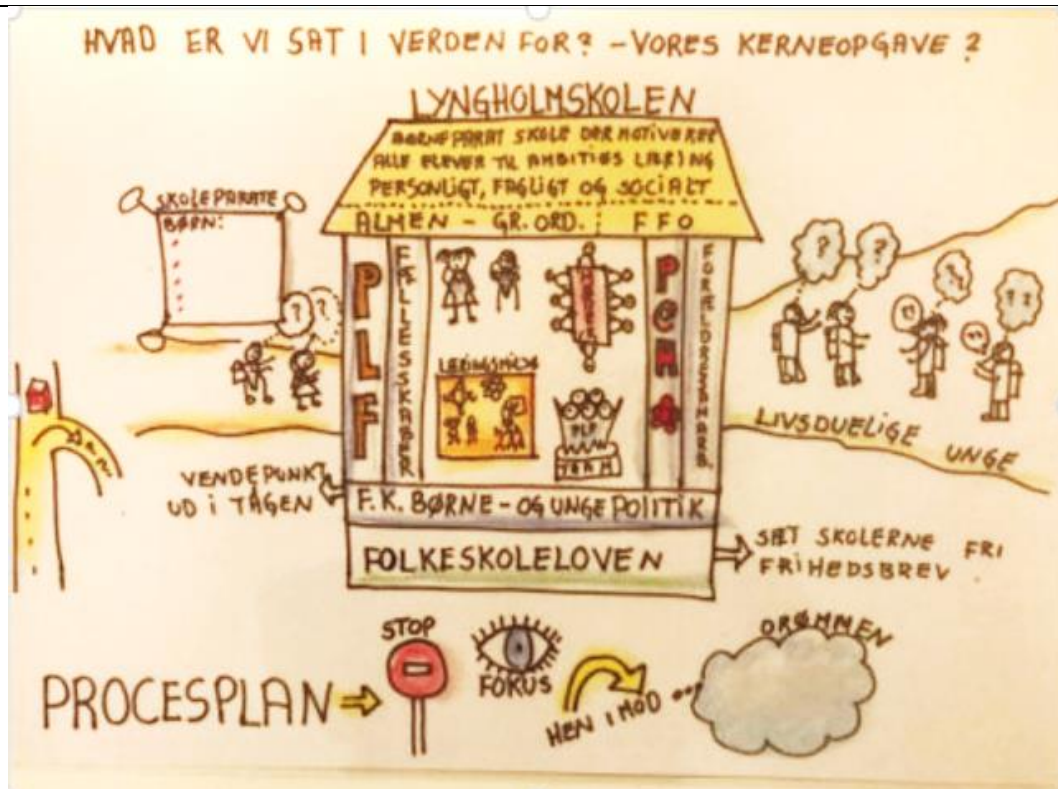 HVAD ER VI SAT I VERDEN FOR? - VORES KERNEOPGAVE?
LYNGHOLMSKOLEN
BØRNEPARAT SKOLE DER MOTIVERER
ALLE ELEVER TIL AMBITIØS LÆRING
PERSONLIGT, FAGLIGT OG SOCIALT
ALMEN - GR. ORD. FFO
SKOLEPARATE
BØRN:
? ?
PLF
FÆLLESSKABER
LÆRINGSMILJØ
PLF
TEAM
FORÆLDRESAMARB.
? ?
? ?
? ?
LIVSDUELIGE UNGE
VENDEPUNKT
UD I TAGEN
F.K. BØRNE- OG UNGEPOLITIK
FOLKESKOLELOVEN
SÆT SKOLERNE FRI
FRIHEDSBREV
PROCESPLAN
STOP
FOKUS
HEN IMOD
DRØMMEN